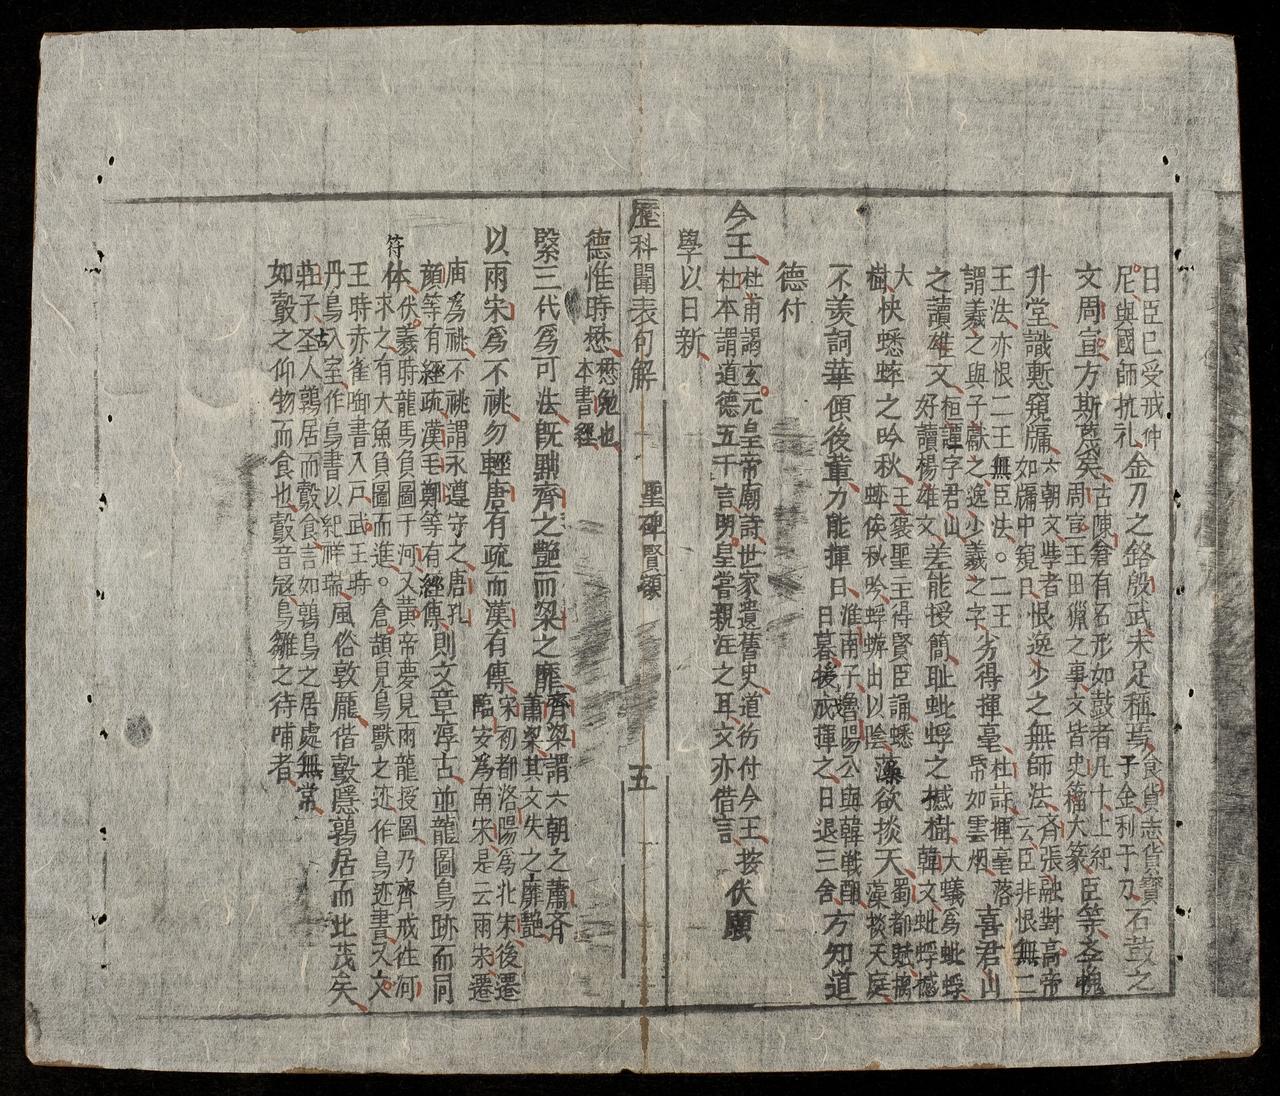 日臣已受戒仲
尼與國師抗礼金刀之銘殷武未足稱焉食貨志貨寳
子金利于刀石鼓之
文周宣方斯蔑矣古陳倉有石形如鼓者凡十上紀
周宣王田獵之事文皆史籀大篆臣等 愧
升堂識慙窺牖六朝文學者
如牖中窺日恨逸少之無師法齐張融對高帝
云臣非恨無二
王法亦恨二王無臣法○二王
謂羲之與子獻之逸少羲之字劣得揮毫杜詩揮毫落
帋如雲烟喜君山
之讀雄文桓譚字君山
好讀楊雄文差能授簡耻蚍蜉之撼樹韓文蚍蜉撼
大蟻爲蚍蜉
大樹快蟋蟀之吟秋王褒聖主得賢臣頌蟋
蟀俟秋吟蜉蝣出以陰藻欲掞天蜀都賦摛
藻掞天庭
不羡詞華傾後輩力能揮日淮南子魯陽公與韓戰酣
日暮援戈揮之日退三舍方知道
德付
今王杜甫謁玄元皇帝廟詩世家遺舊史道德付今王按
杜本謂道德五千言明皇嘗親注之耳文亦借言伏願
學以日新
歷科闈表句解 聖碑賢領 五
德惟時懋懋勉也
本書經
緊三代爲可法旣黜齊之艷而梁之靡齊梁謂六朝之蕭齐
蕭梁其文失之靡艷
以兩宋爲不祧勿輕唐有疏而漢有傳宋初都洛陽爲北宋後遷
臨安爲南宋是云兩宋遷
庙爲祧不祧謂永遵守之唐孔
顔等有經疏漢毛鄭等有經傳則文章淳古並龍圖鳥跡而同
符
体伏羲時龍馬負圖千河又黄帝夢見兩龍授圖乃齊戒往河
求之有大魚負圖而進○倉頡見鳥獸之迹作鳥迹書久文
王時赤雀啣書入戸武王時
丹鳥入室作鳥書以紀祥瑞風俗敦厖偕鷇隱鶉居而比茂矣
莊子圣人鶉居而鷇食言如鶉鳥之居處無常
古
如鷇之仰物而食也鷇音冦鳥雛之待哺者